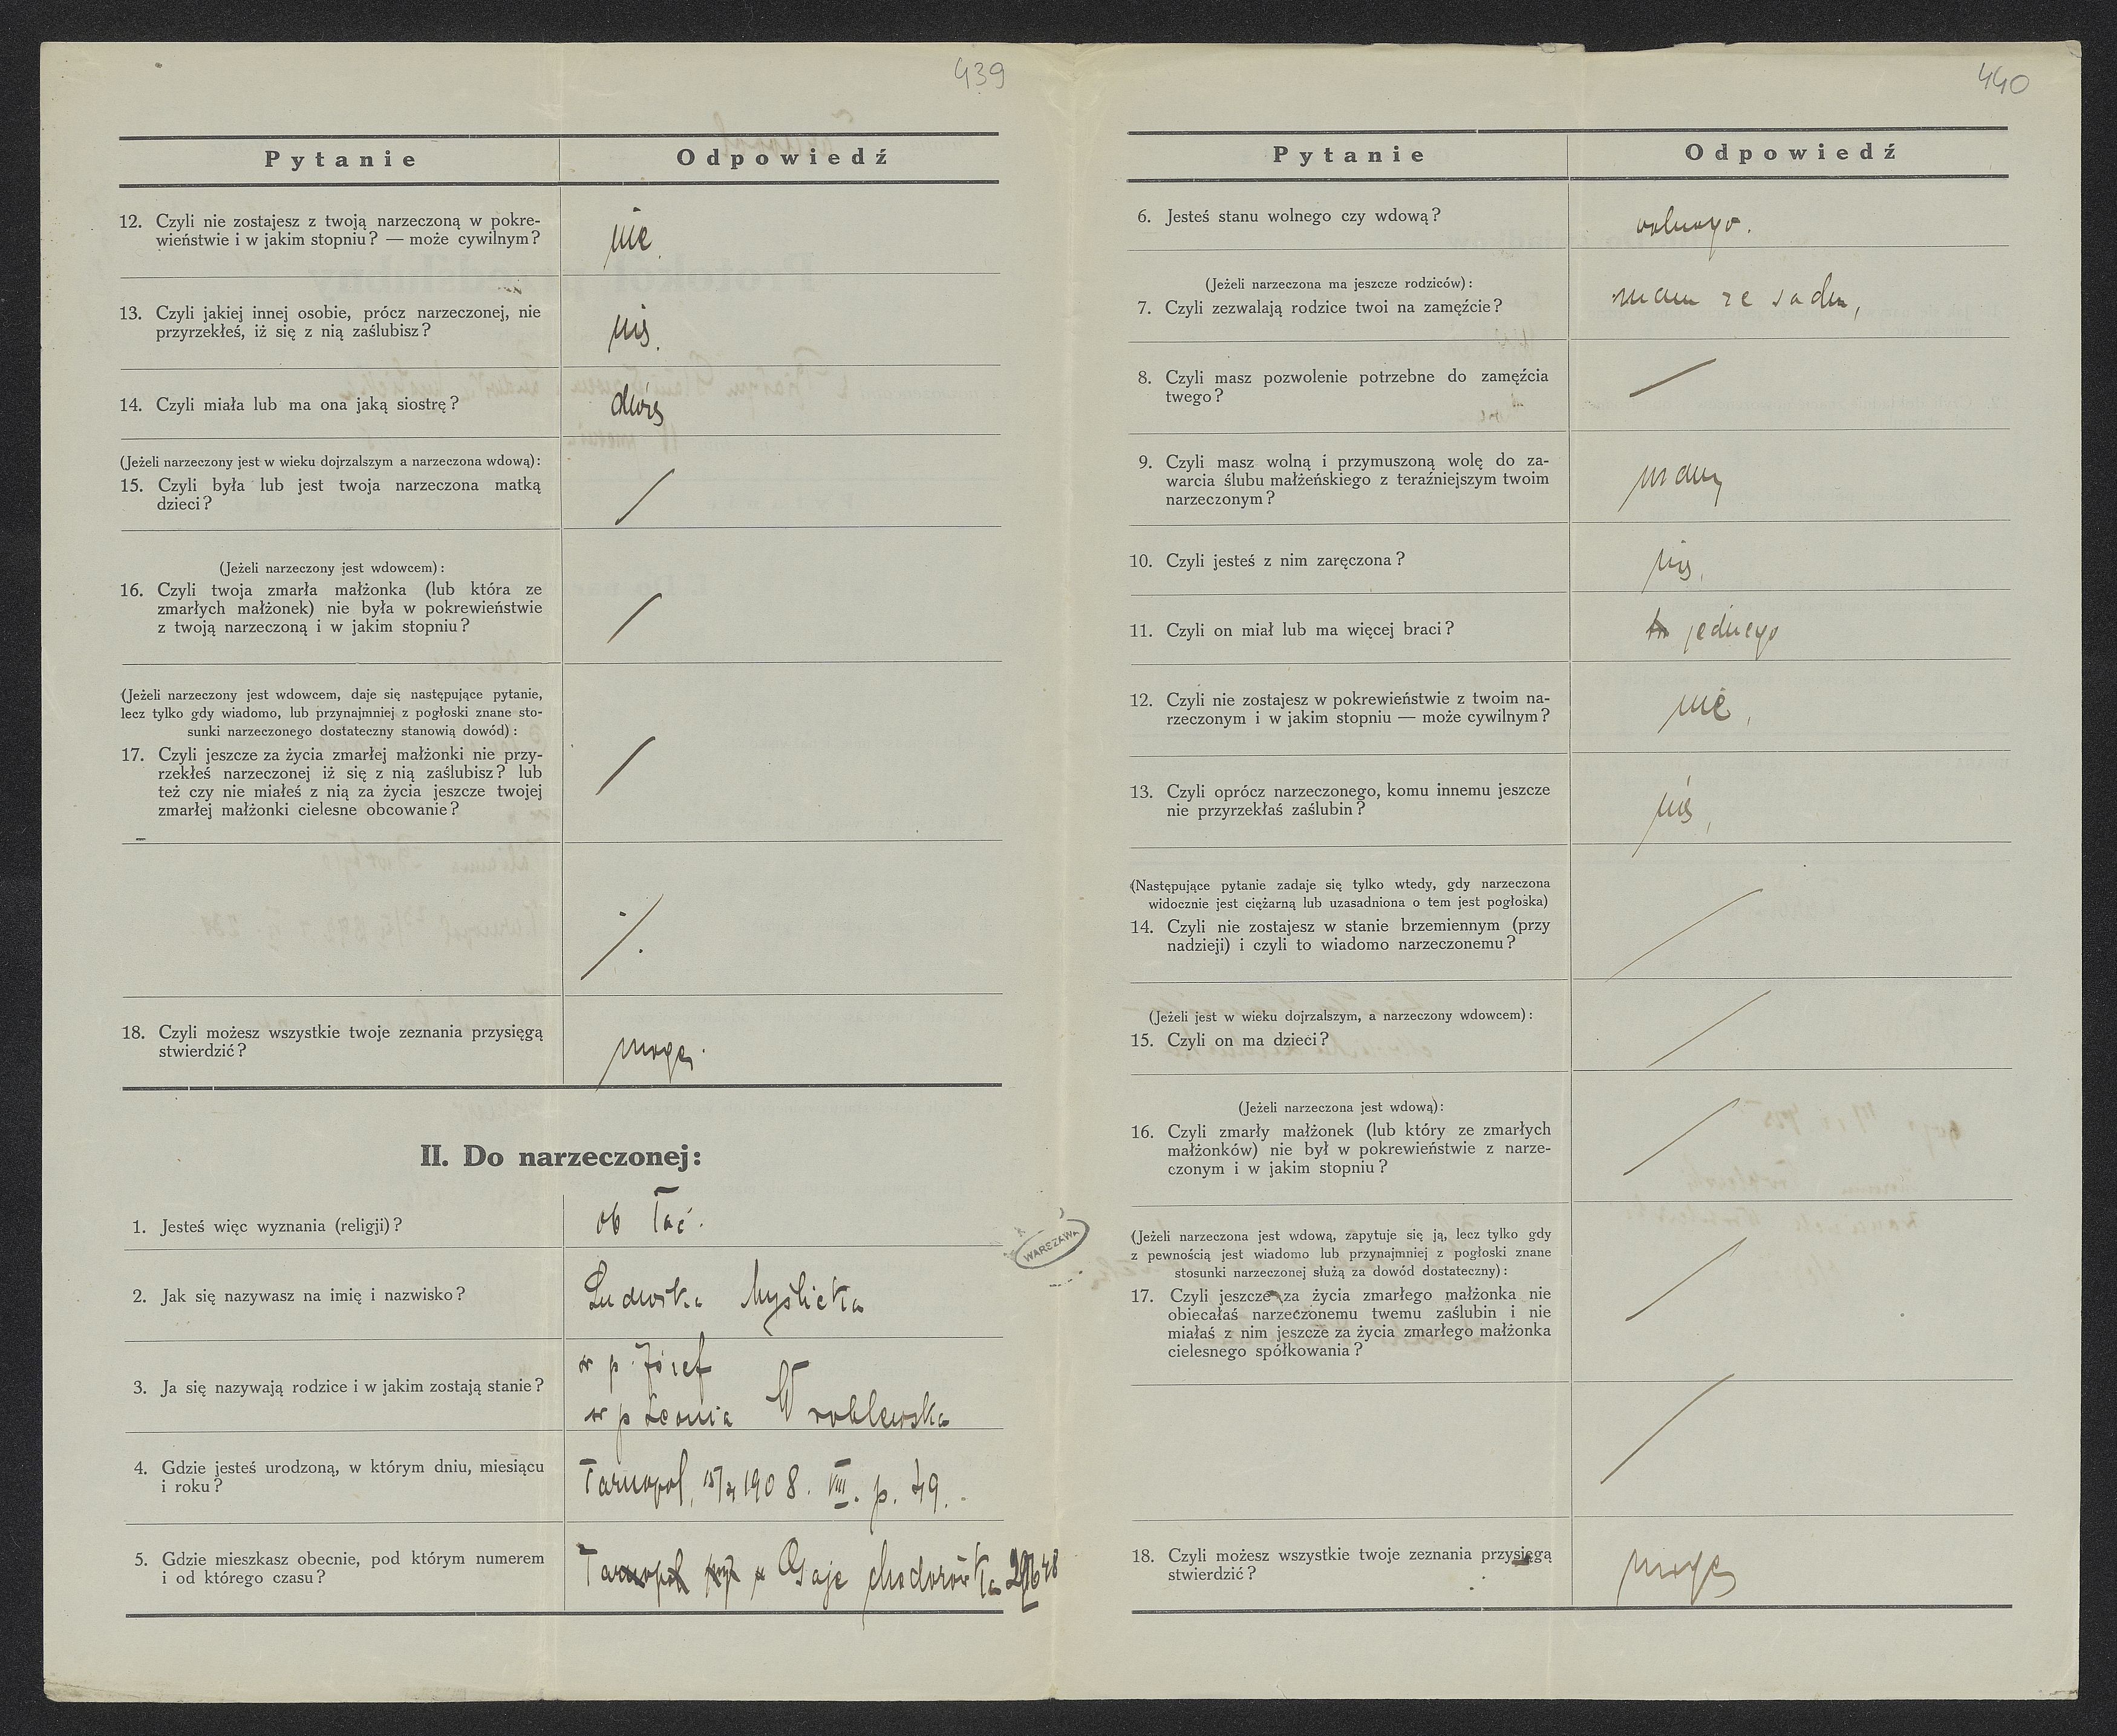 439
Pytanie Odpowiedź
12. Czyli nie zostajesz z twoją narzeczoną w pokre-
wieństwie i w jakim stopniu? — może cywilnym?
nie.
13. Czyli jakiej innej osobie, prócz narzeczonej, nie
przyrzekłeś, iż się z nią zaślubisz?
nie.
14. Czyli miała lub ma ona jaką siostrę?
dwie
(Jeżeli narzeczony jest w wieku dojrzalszym a narzeczona wdową):
15. Czyli była lub jest twoja narzeczona matką
dzieci?
/
(Jeżeli narzeczony jest wdowcem):
16. Czyli twoja zmarła małżonka (lub która ze
zmarłych małżonek) nie była w pokrewieństwie
z twoją narzeczoną i w jakim stopniu?
/
(Jeżeli narzeczony jest wdowcem, daje się następujące pytanie,
lecz tylko gdy wiadomo, lub przynajmniej z pogłoski znane sto-
sunki narzeczonego dostateczny stanowią dowód):
17. Czyli jeszcze za życia zmarłej małżonki nie przy-
rzekłeś narzeczonej iż się z nią zaślubisz? lub
też czy nie miałeś z nią za życia jeszcze twojej
zmarłej małżonki cielesne obcowanie?
/
./.
18. Czyli możesz wszystkie twoje zeznania przysięgą
stwierdzić?
mogę.
II. Do narzeczonej:
1. Jesteś więc wyznania (religji)?
ob łać.
2. Jak się nazywasz na imię i nazwisko?
Ludwika Myślicka
3. Ja się nazywają rodzice i w jakim zostają stanie?
p. Józef
p Leonia Wroblewska
4. Gdzie jesteś urodzoną, w którym dniu, miesiącu
i roku?
Tarnopol, 1908. VIII. p. 49.
5. Gdzie mieszkasz obecnie, pod którym numerem
i od którego czasu?
Tarnopol Gaje chodorówka
WARSZAWA
440
Pytanie Odpowiedź
6. Jesteś stanu wolnego czy wdową?
wolnego.
(Jeżeli narzeczona ma jeszcze rodziców):
7. Czyli zezwalają rodzice twoi na zamęźcie?
mam ze sadu,
8. Czyli masz pozwolenie potrzebne do zamęźcia
twego?
/
9. Czyli masz wolną i przymuszoną wolę do za-
warcia ślubu małżeńskiego z teraźniejszym twoim
narzeczonym?
mam
10. Czyli jesteś z nim zaręczona?
nie,
11. Czyli on miał lub ma więcej braci?
jednego
12. Czyli nie zostajesz w pokrewieństwie z twoim na-
rzeczonym i w jakim stopniu — może cywilnym?
nie,
13. Czyli oprócz narzeczonego, komu innemu jeszcze
nie przyrzekłaś zaślubin?
nie,
(Następujące pytanie zadaje się tylko wtedy, gdy narzeczona
widocznie jest ciężarną lub uzasadniona o tem jest pogłoska)
14. Czyli nie zostajesz w stanie brzemiennym (przy
nadzieji) i czyli to wiadomo narzeczonemu?
/
(Jeżeli jest w wieku dojrzalszym, a narzeczony wdowcem):
15. Czyli on ma dzieci?
/
(Jeżeli narzeczona jest wdową):
16. Czyli zmarły małżonek (lub który ze zmarłych
małżonków) nie był w pokrewieństwie z narze-
czonym i w jakim stopniu?
/
(Jeżeli narzeczona jest wdową, zapytuje się ją, lecz tylko gdy
z pewnością jest wiadomo lub przynajmniej z pogłoski znane
stosunki narzeczonej służą za dowód dostateczny):
17. Czyli jeszcze za życia zmarłego małżonka nie
obiecałaś narzeczonemu twemu zaślubin i nie
miałaś z nim jeszcze za życia zmarłego małżonka
cielesnego spółkowania?
/
/
18. Czyli możesz wszystkie twoje zeznania przysięgą
stwierdzić?
mogę